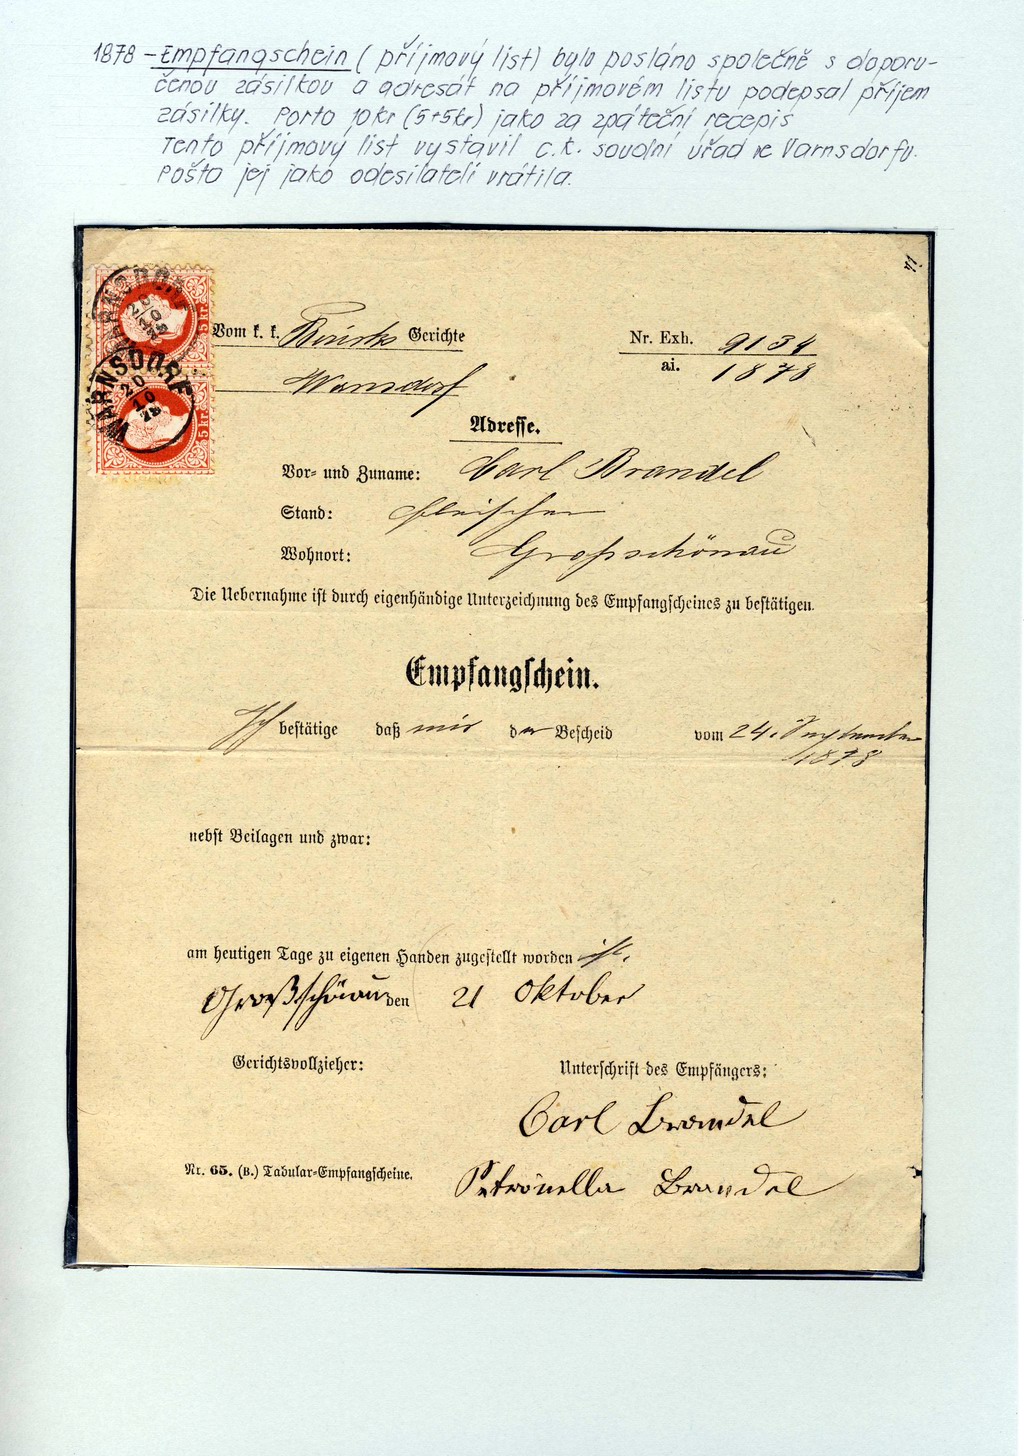 1878 – Empfangschein ( příjmový list) bylo posláno společně s doporu-
čenou zásilkou a adresát na příjmovém listu podepsal příjem
zásilky. Porto 10kr (5+5kr) jako za zpáteční recepis
Tento příjmový list vystavil c.k. soudní úřad ve Varnsdorfu.
Pošta jej jako odesílateli vrátila.
5 kr.
WARNSDORF
20
10
78
5 kr.
WARNSDORF
20
10
78
Vom k. k. Bezirks Gerichte
Nr. Exh. 9134
ai. 1878
Warnsdorf
Adresse.
Vor- und Zuname: Carl Brandel
Stand: Fleischer
Wohnort: Großschönau
Die Uebernahme ist durch eigenhändige Unterzeichnung des Empfangscheines zu bestätigen.
Empfangschein.
Ich bestätige daß mir der Bescheid vom 24. September
1878
nebst Beilagen und zwar:
am heutigen Tage zu eigenen Handen zugestellt worden ist.
Großschönau den 21 Oktober
Gerichtsvollzieher: Unterschrift des Empfängers:
Carl Brandel
Nr. 65. (B.) Tabular-Empfangscheine.
Petronella Brandel